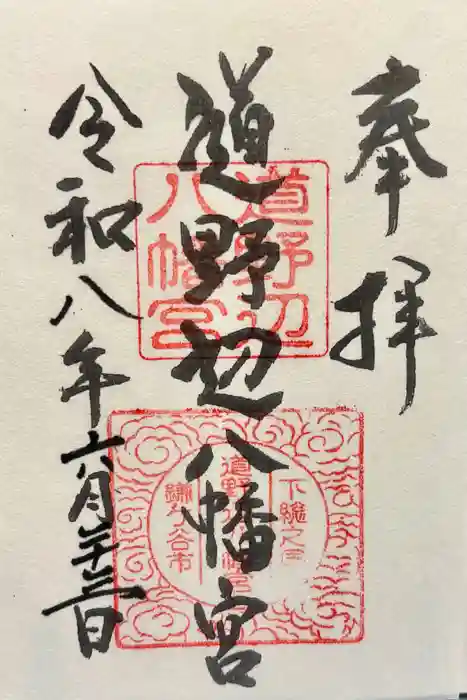 奉拝
道野辺八幡宮
令和八年六月二十三日
道野辺
八幡宮
下総之国
道野辺八幡宮
鎌ヶ谷市